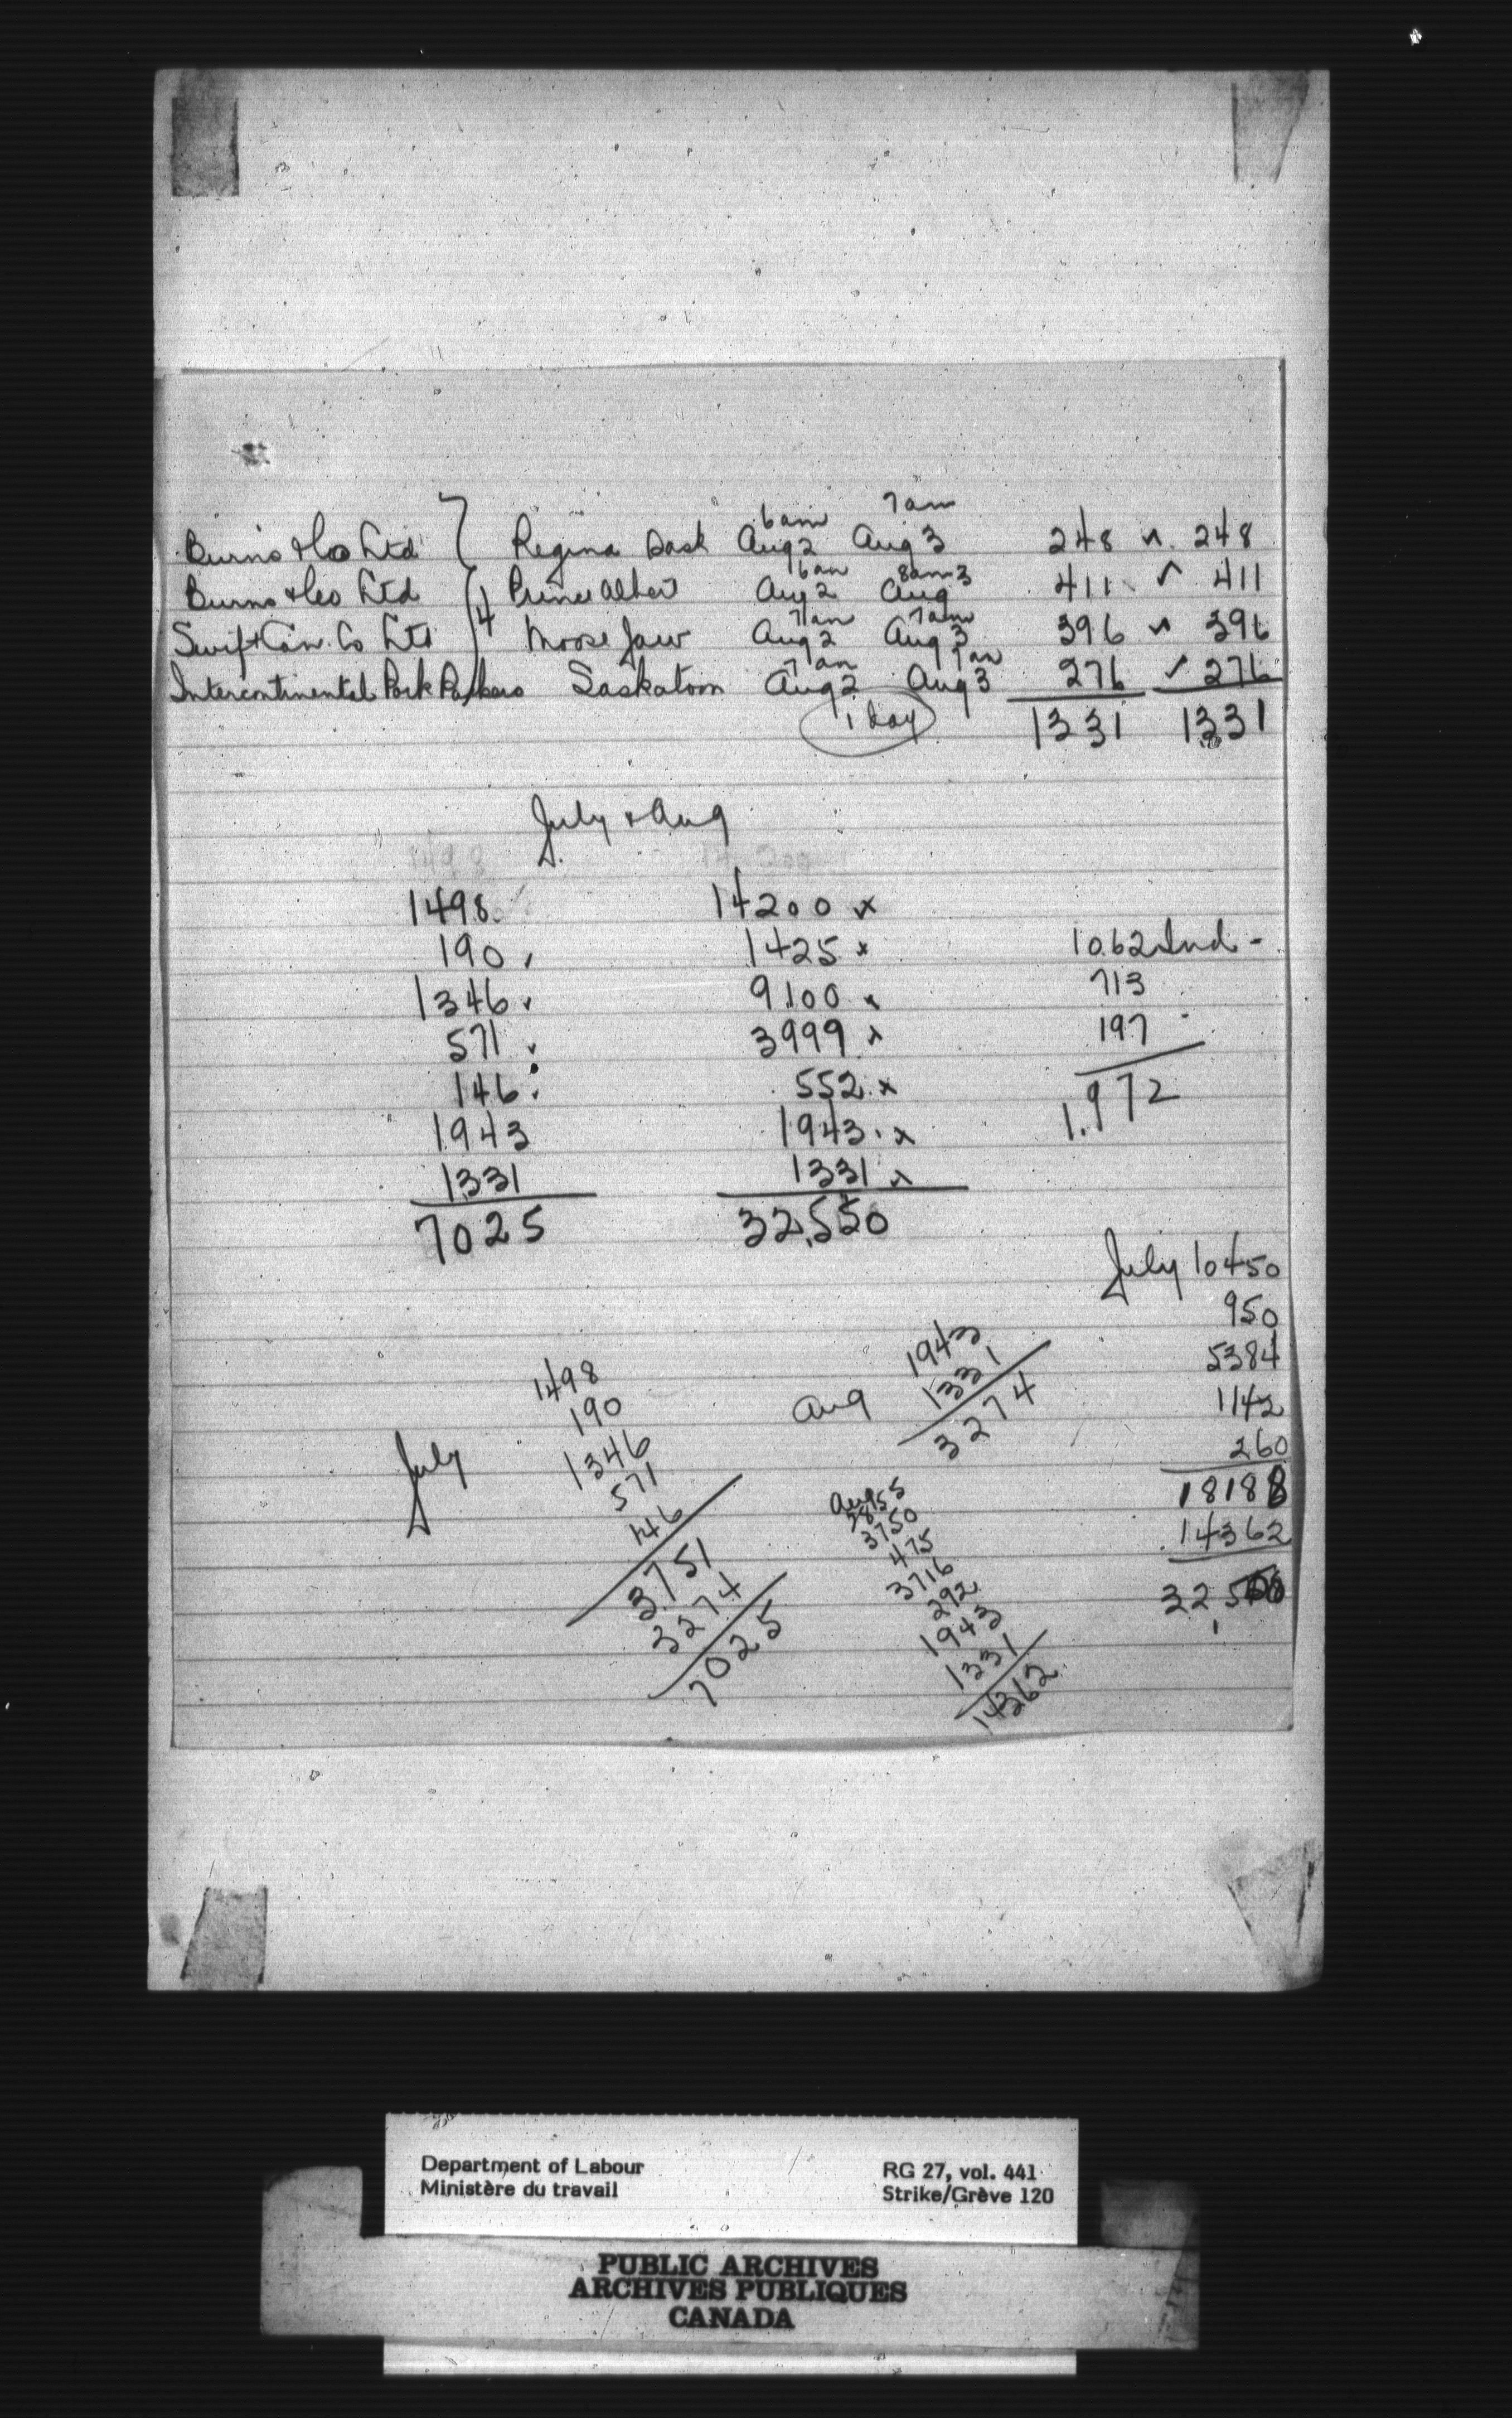 Burns & Co Ltd } Regina Sask 6am Aug 2 7am Aug 3 248 ✓ 248
Burns & Co Ltd 4 Prince Albert 6am Aug 2 8am Aug 3 411 ✓ 411
Swift Can. Co Ltd Moose Jaw 7am Aug 2 7am Aug 3 396 ✓ 396
Intercontinental Pork Packers Saskatoon 7am Aug 2 7am Aug 3 276 ✓ 276
1 day 1331 1331
July & Aug
1498 14200 x
190 1425 x 1062 Ind -
1346 9100 x 713
571 3999 x 197
146 552 x 1,972
1943 1943 x
1331 1331 x
7025 32,550
July 10450
950
5384
1142
260
18188
14362
32,550
July
1498
190
1346
571
146
3751
3274
7025
Aug
1943
1331
3274
Aug
2855
3750
475
3716
292
1943
1331
14362
Department of Labour
Ministère du travail
RG 27, vol. 441
Strike/Grève 120
PUBLIC ARCHIVES
ARCHIVES PUBLIQUES
CANADA